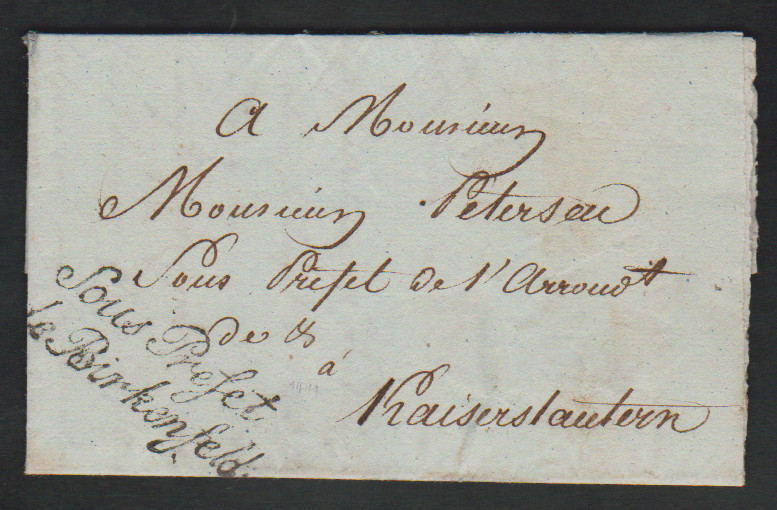 A Monsieur
Monsieur Petersen
Sous Préfet de l'Arrondt
de &
à
Kaiserslautern
Sous Prefet
de Birkenfeld.